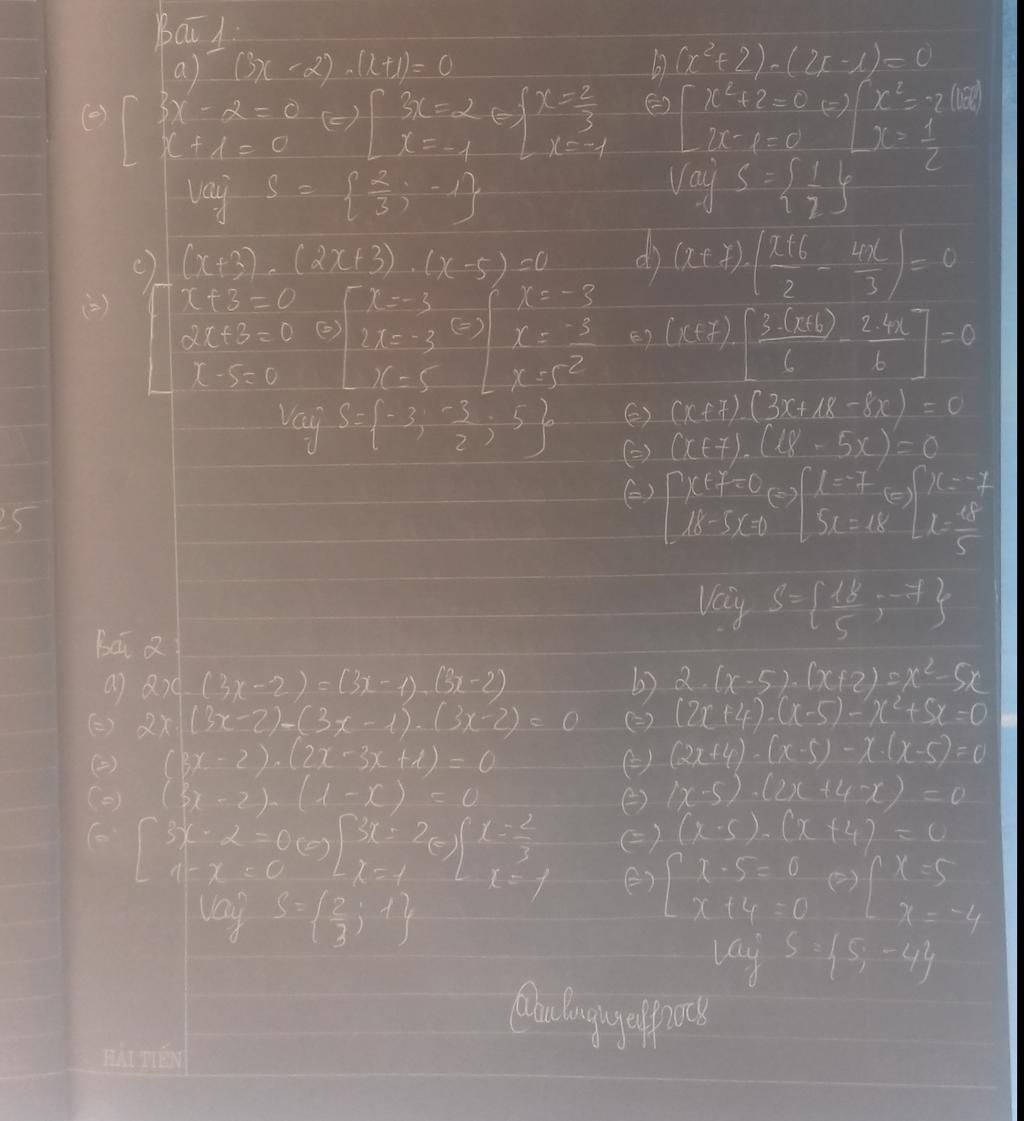 Bài 1:
a) (3x - 2).(x+1) = 0
(=) [3x - 2 = 0 (=) [3x = 2 (=) [x = 2/3
x + 1 = 0 x = -1 x = -1
Vậy S = {2/3; -1}
b) (x² + 2).(2x - 1) = 0
(=) [x² + 2 = 0 (=) [x² = -2
2x - 1 = 0 x = 1/2
Vậy S = {1/2}
c) (x+3).(2x+3).(x-5) = 0
(=) [x+3 = 0 [x = -3 [x = -3
2x+3 = 0 (=) 2x = -3 (=) x = -3/2
x-5 = 0 x = 5 x = 5
Vậy S = {-3; -3/2; 5}
d) (x+7).(x+6/2 - 4x/3) = 0
(=) (x+7).[3.(x+6)/6 - 2.4x/6] = 0
(=) (x+7).(3x+18-8x) = 0
(=) (x+7).(18 - 5x) = 0
(=) [x+7=0 (=) [x=-7 (=) [x=-7
18-5x=0 5x=18 x=18/5
Vậy S = {18/5; -7}
25
Bài 2:
a) 2x.(3x-2) = (3x-1).(3x-2)
(=) 2x.(3x-2)-(3x-1).(3x-2) = 0
(=) (3x-2).(2x-3x+1) = 0
(=) (3x-2).(1-x) = 0
(=) [3x-2=0 (=) [3x=2 (=) [x=2/3
1-x=0 x=1 x=1
Vậy S = {2/3; 1}
b) 2.(x-5).(x+2) = x²-5x
(=) (2x+4).(x-5) - x²+5x = 0
(=) (2x+4).(x-5) - x.(x-5) = 0
(=) (x-5).(2x+4-x) = 0
(=) (x-5).(x+4) = 0
(=) [x-5 = 0 (=) [x = 5
x+4 = 0 x = -4
Vậy S = {5; -4}
HẢI TIẾN